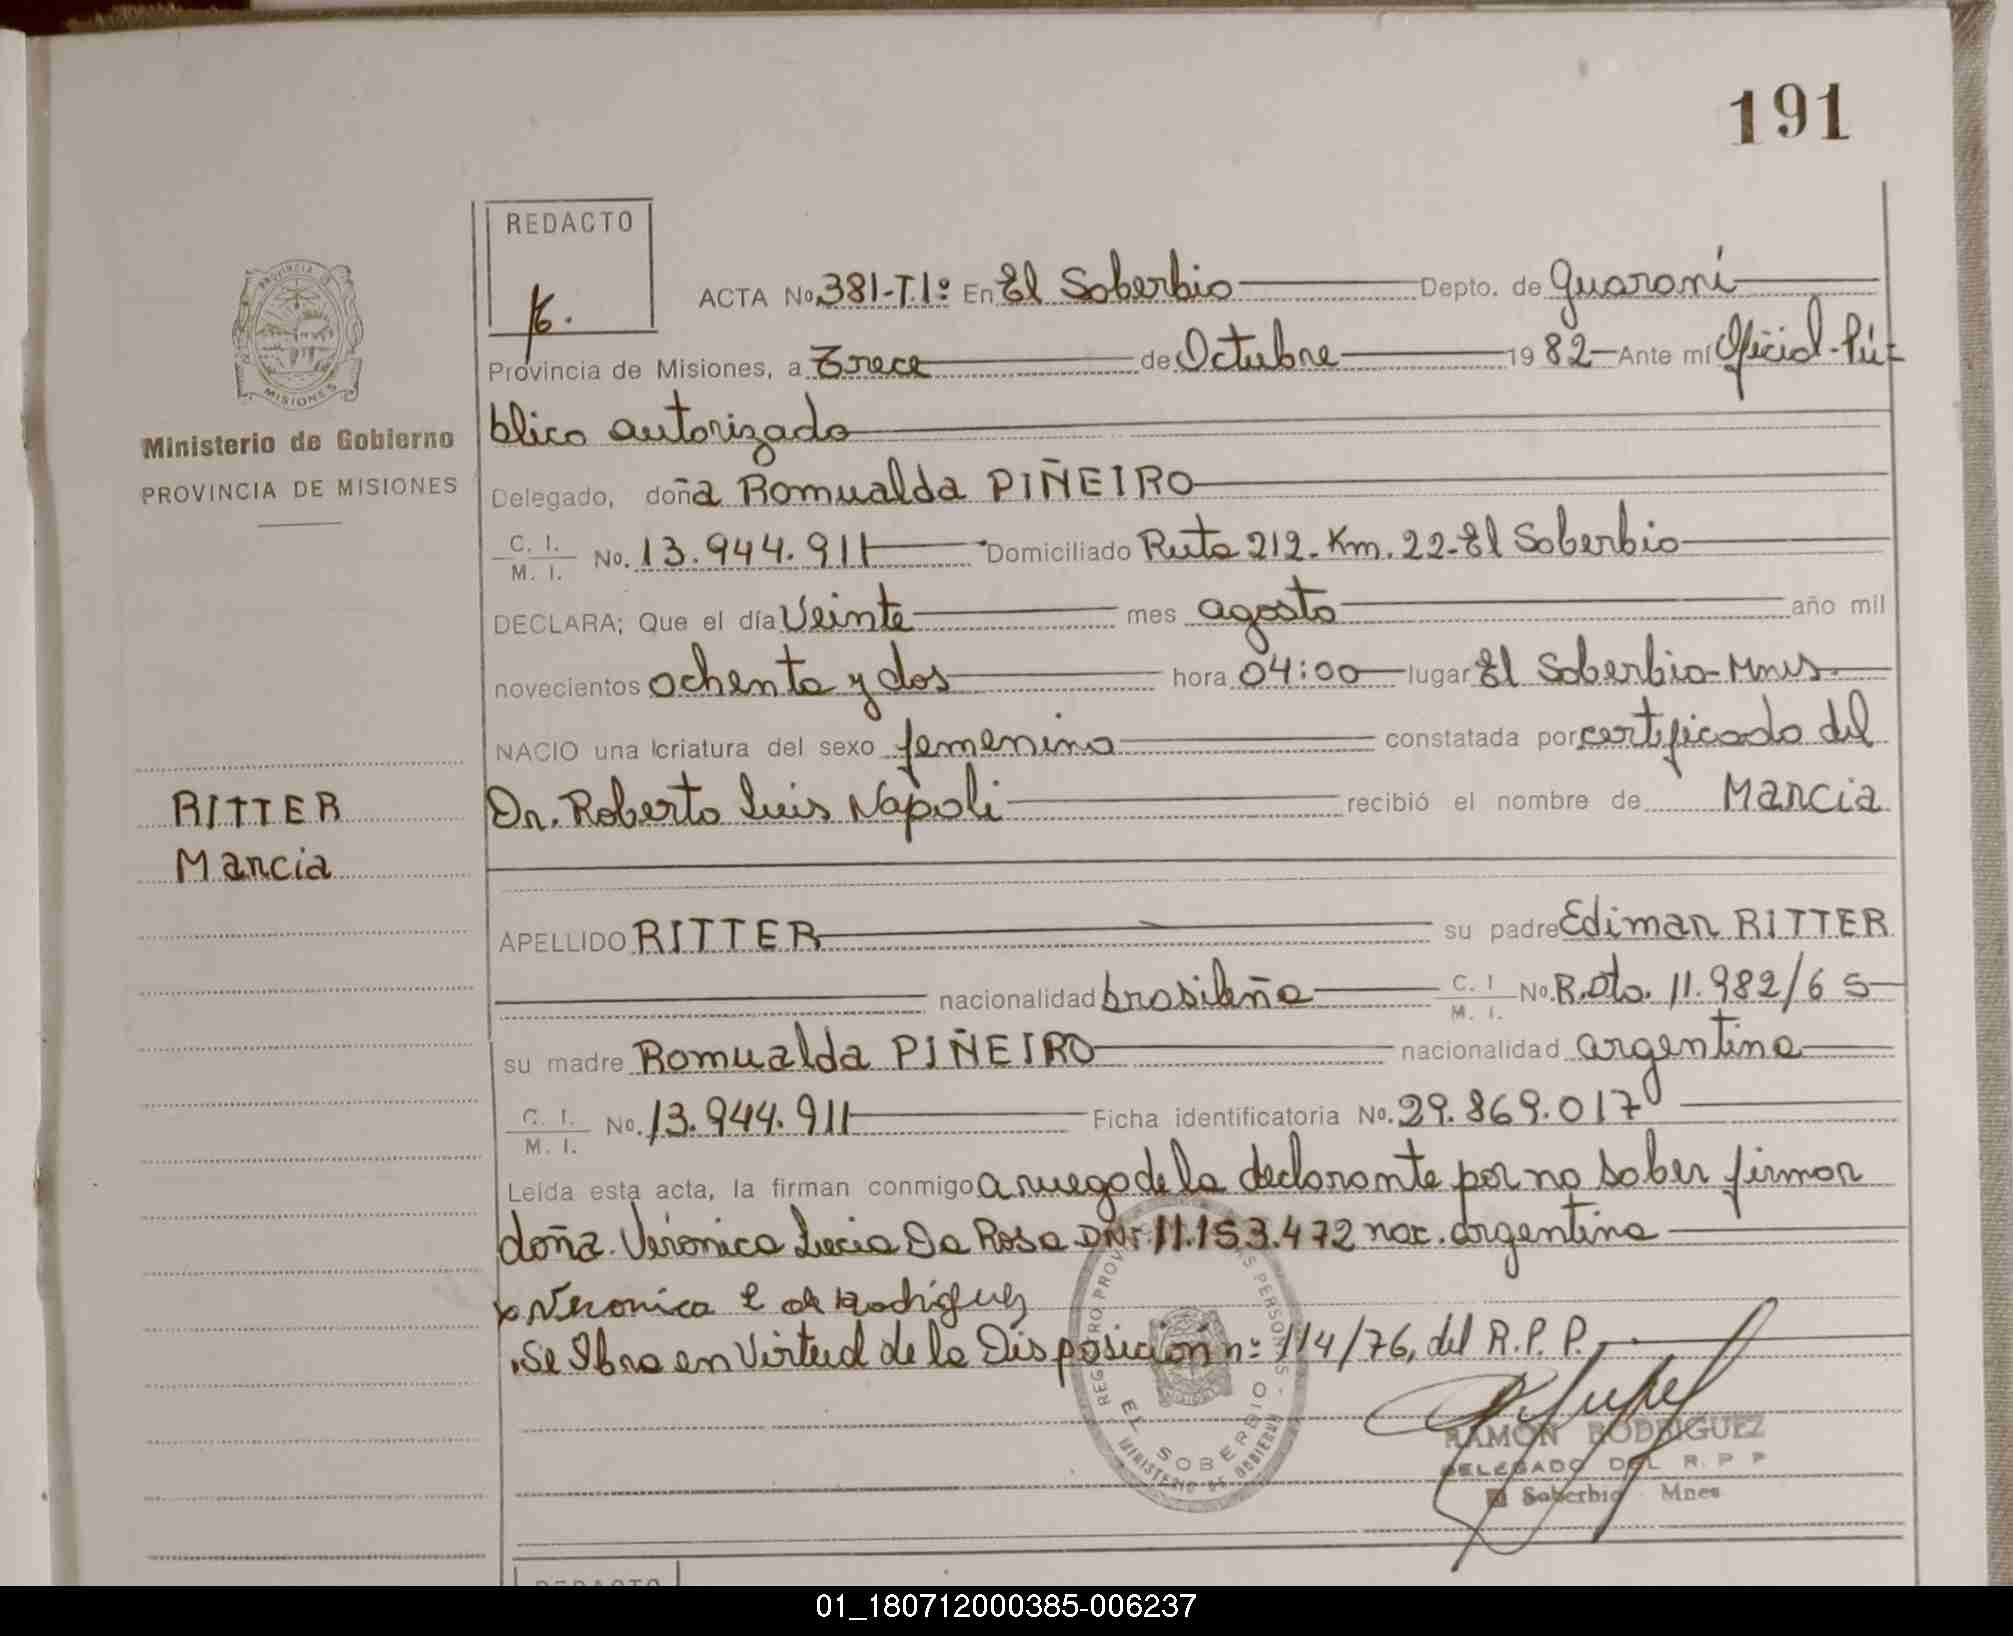 191
REDACTO
ACTA No. 381-T.1º En El Soberbio Depto. de Guaraní
Provincia de Misiones, a Trece de Octubre 1982 Ante mí Oficial-Pú-
blico autorizado
Ministerio de Gobierno
PROVINCIA DE MISIONES
Delegado, doña Romualda PIÑEIRO
C. I. M. I. No. 13.944.911 Domiciliado Ruta 212-Km. 22-El Soberbio
DECLARA; Que el día Veinte mes agosto año mil
novecientos ochenta y dos hora 04:00 lugar El Soberbio-Mnes.
NACIO una criatura del sexo femenino constatada por certificado del
RITTER
Mancia
Dr. Roberto Luis Napoli recibió el nombre de Mancia
APELLIDO RITTER su padre Ediman RITTER
nacionalidad brasileña C. I M. I. No. R.Dto. 11.982/65
su madre Romualda PIÑEIRO nacionalidad argentina
C. I. M. I. No. 13.944.911 Ficha identificatoria No. 29.869.017
Leída esta acta, la firman conmigo a ruego de la declarante por no saber firmar
doña Verónica Lucia Da Rosa DNI. 11.153.472 nac. argentina
x Veronica L de Rodriguez
Se Obra en Virtud de la Disposición nº 114/76, del R.P.P.
EL SOBERBIO
MINISTERIO DE GOBIERNO
RAMON RODRIGUEZ
DELEGADO DEL R. P P
El Soberbio Mnes
REDACTO
01_180712000385-006237